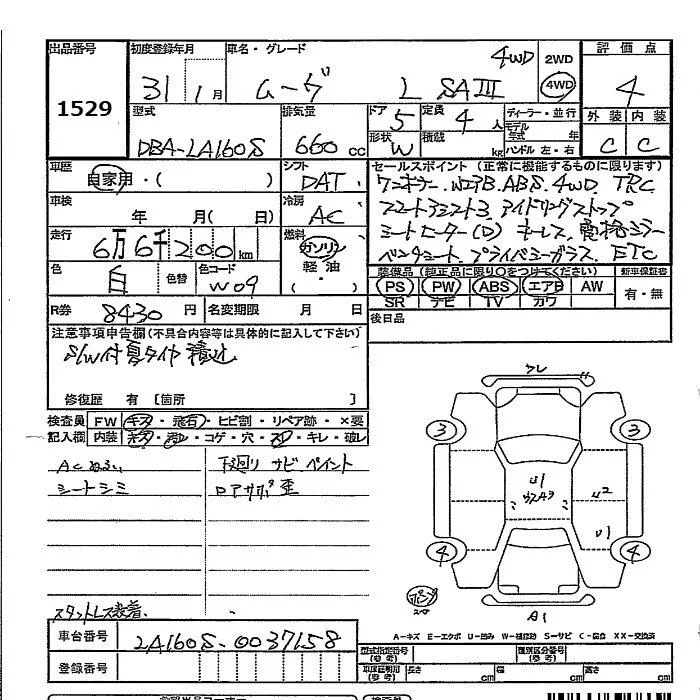 出品番号 初度登録年月 車名・グレード 評価点
1529 31年1月 ムーヴ L SAⅢ 4WD 2WD 4WD 4
型式 排気量 ドア 定員 ディーラー・並行 外装 内装
DBA-LA160S 660cc 5 4人 モデル年式 年 C C
形状 W 積載 kg ハンドル 左・右
車歴 シフト セールスポイント (正常に機能するものに限ります)
自家用・( ) DAT ワンオーナー. WエアB. ABS. 4WD. TRC
車検 冷房 スマートアシスト3. アイドリングストップ
年 月( 日) AC シートヒーター(D) キーレス. 電格ミラー
走行 燃料 ベンチシート. プライバシーガラス. ETC
6万6千200km ガソリン 軽油 ・( )
装備品 (純正品に限り○をつけてください) 新車保証書
色 色替 色コード PS PW ABS エアB AW 有・無
白 W09 SR ナビ TV カワ
R券 8430円 名変期限 月 日 後日品
注意事項申告欄(不具合内容等は具体的に記入して下さい)
S/W付夏タイヤ積込
修復歴 有 [箇所 ]
検査員 FW キズ・飛石・ヒビ割・リペア跡・×要
記入欄 内装 コゲ・穴・スレ・キレ・破レ
ACぬるい 下廻り サビ ペイント
シートシミ ロアサポ歪
スタットレス装着.
フレ
3 3
U1
U2
U1
4 4
A1
A-キズ E-エクボ U-凹み W-補修跡 S-サビ C-腐食 XX-交換済
車台番号 LA160S-0037158
登録番号
型式指定番号(参考) 類別区分番号(参考)
長さ cm 幅 cm 高さ cm